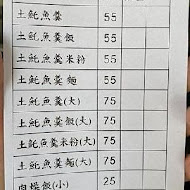 土魠魚羹 55
土魠魚羹飯 55
土魠魚羹米粉 55
土魠魚羹麵 55
土魠魚羹(大) 75
土魠魚羹飯(大) 75
土魠魚羹米粉(大) 75
土魠魚羹麵(大) 75
肉燥飯(小) 25